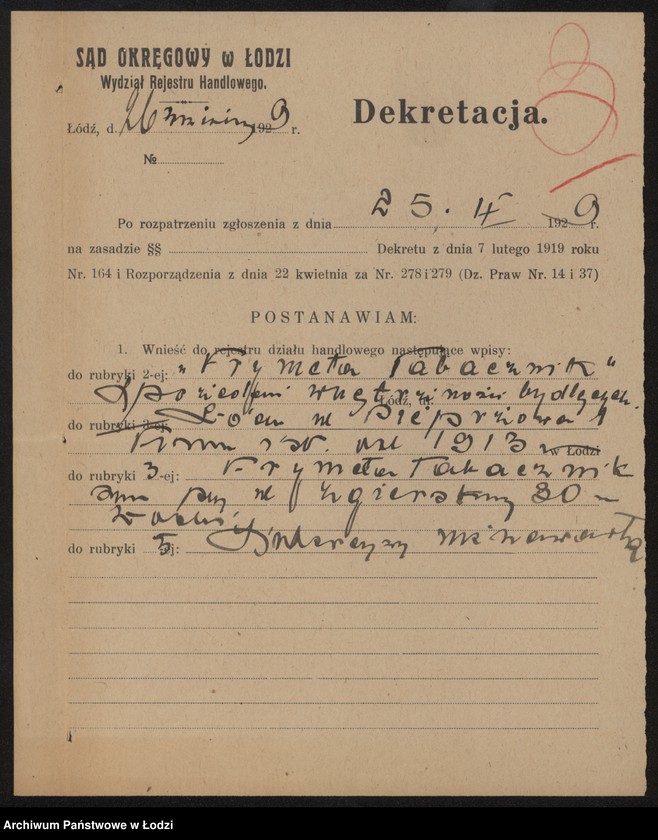 SĄD OKRĘGOWY w ŁODZI
Wydział Rejestru Handlowego.
Dekretacja.
Łódź, d. 26 1929 r.
№
Po rozpatrzeniu zgłoszenia z dnia 25. IX 1929 r.
na zasadzie §§ Dekretu z dnia 7 lutego 1919 roku
Nr. 164 i Rozporządzenia z dnia 22 kwietnia za Nr. 278 i 279 (Dz. Praw Nr. 14 i 37)
POSTANAWIAM:
1. Wnieść do rejestru działu handlowego następujące wpisy:
do rubryki 2-ej: „Frymeta Tabacznik"
wnętrzności bydlęcych.
Łódź, ul.
do rubryki 3-ej: Łódź ul Pieprzowa 1
Firma istn. od 1913 w Łodzi
do rubryki 3-ej: Frymeta Tabacznik
zam przy ul Zgierskiej 30 w
Łodzi
do rubryki 5-ej: Intercyzy nie zawarła
Archiwum Państwowe w Łodzi